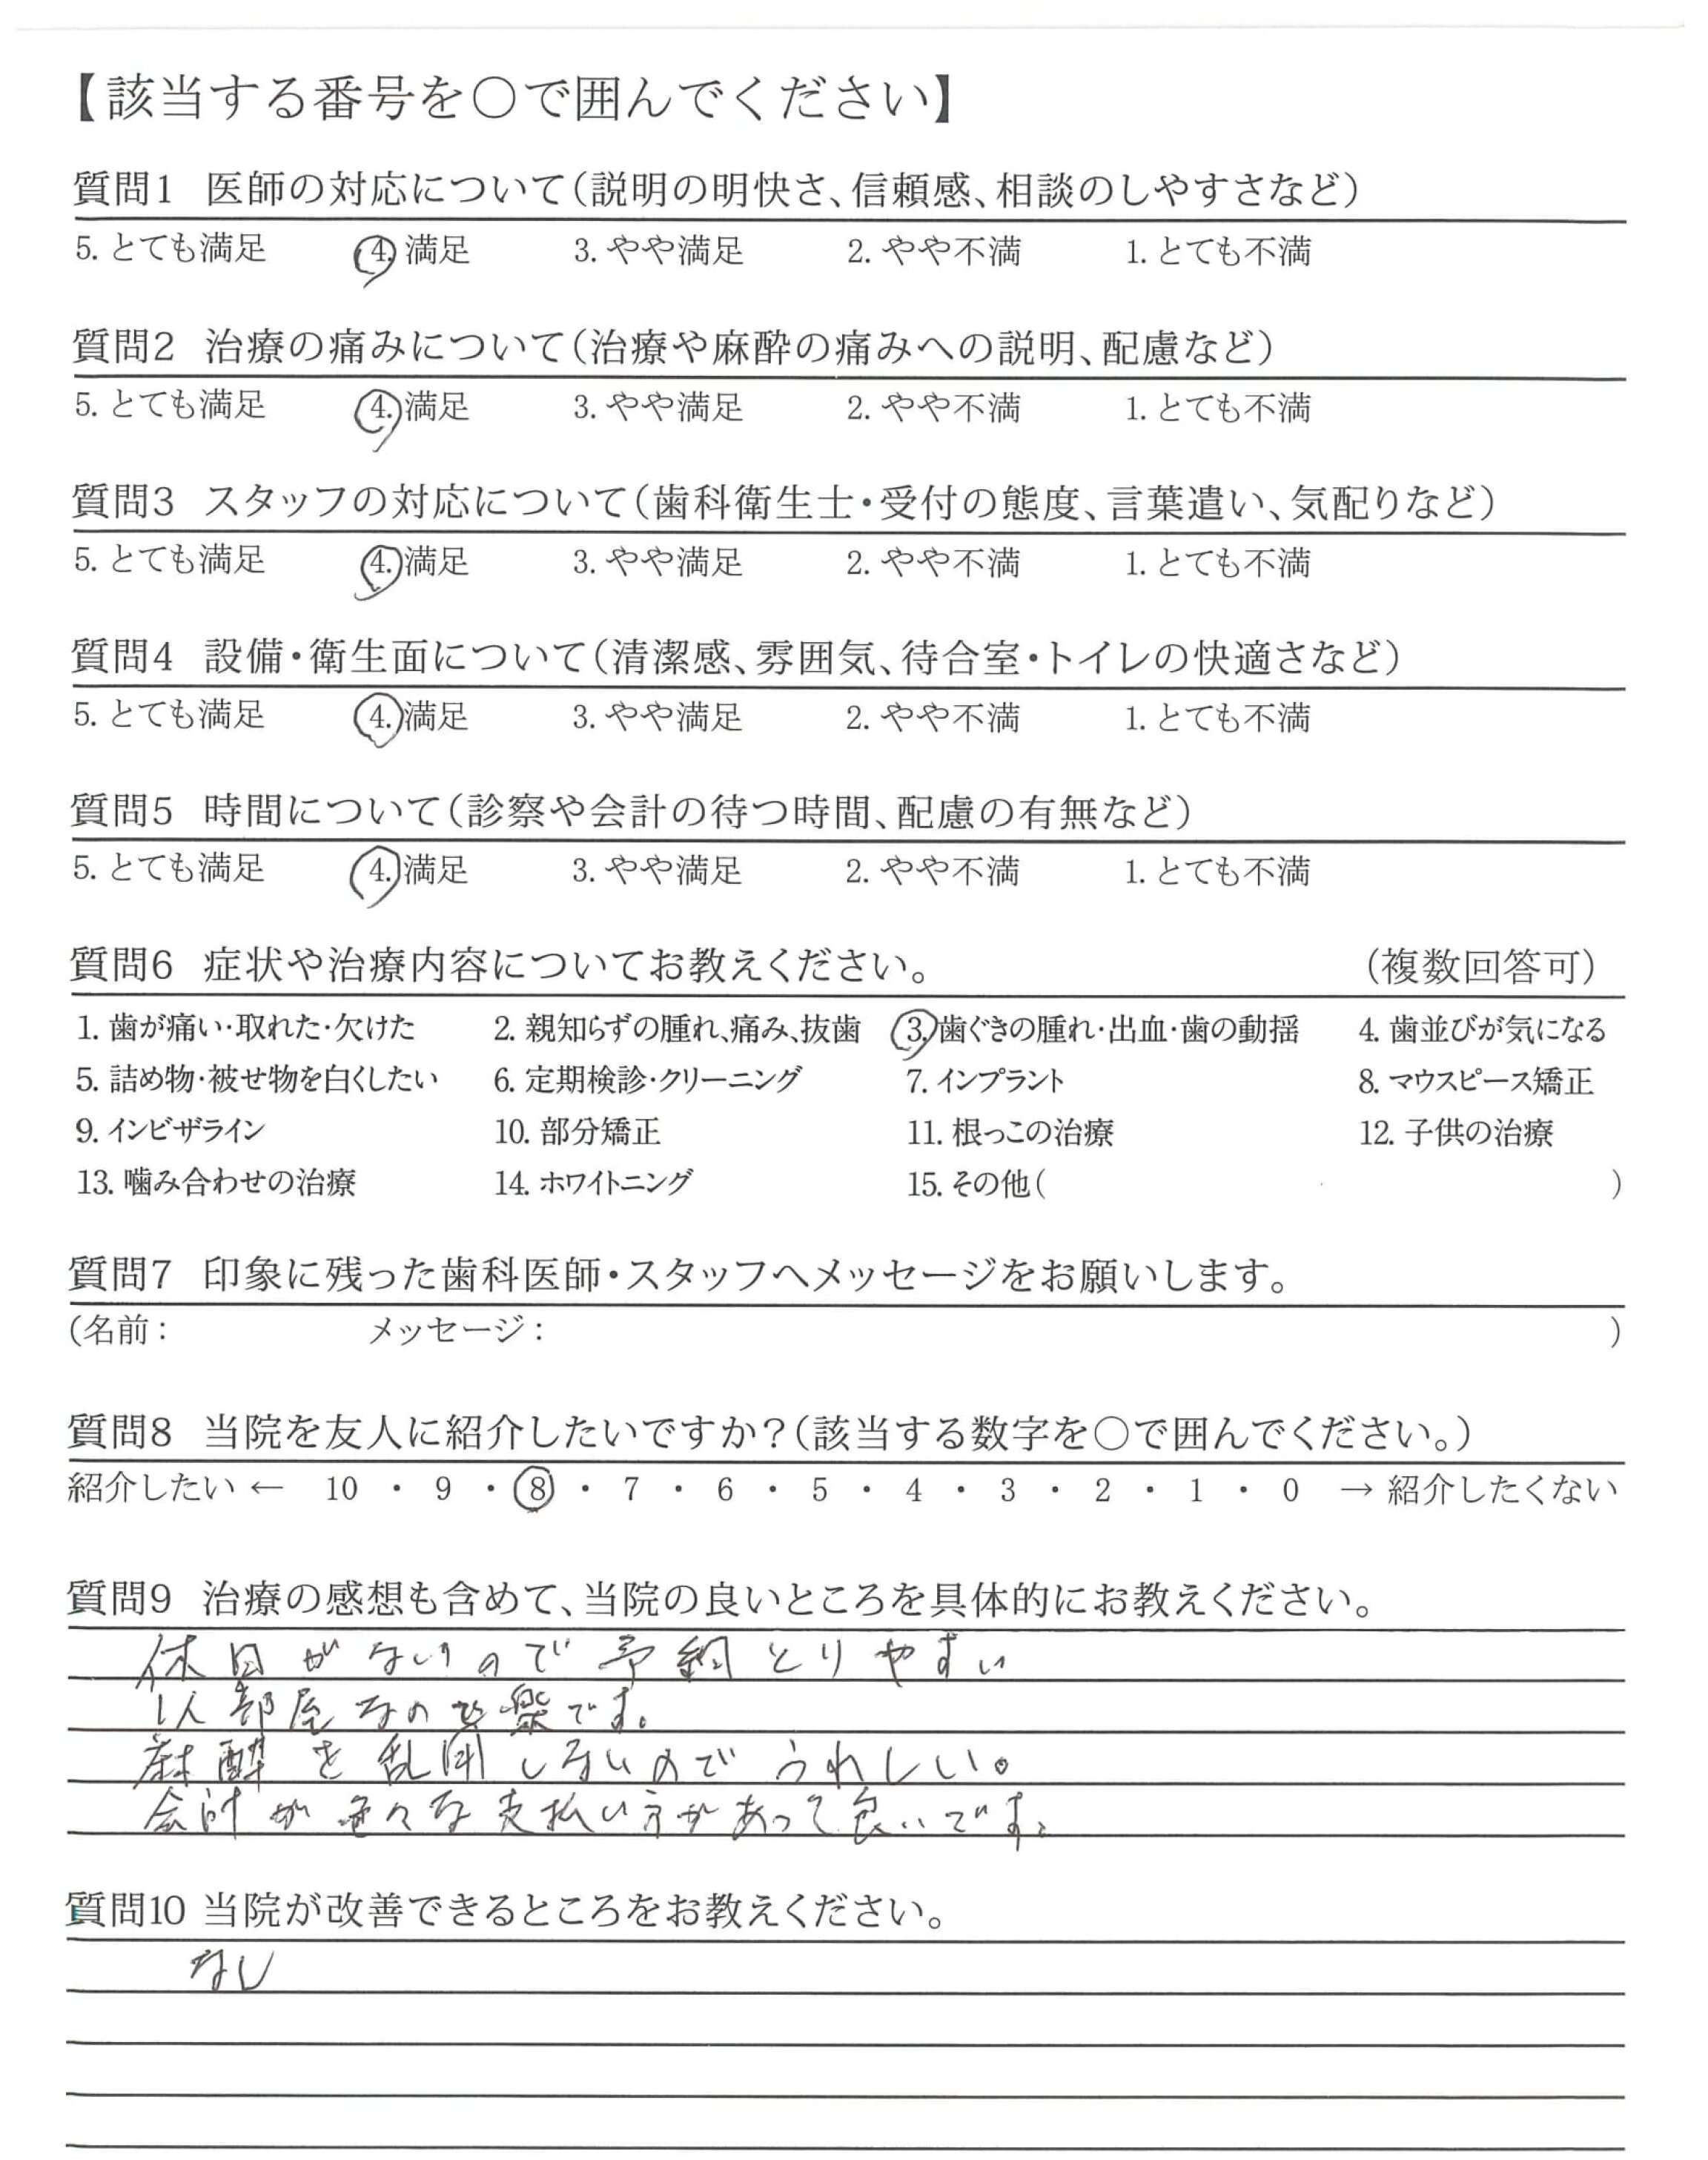 【該当する番号を○で囲んでください】
質問1 医師の対応について（説明の明快さ、信頼感、相談のしやすさなど）
5. とても満足 4. 満足 3. やや満足 2. やや不満 1. とても不満
質問2 治療の痛みについて（治療や麻酔の痛みへの説明、配慮など）
5. とても満足 4. 満足 3. やや満足 2. やや不満 1. とても不満
質問3 スタッフの対応について（歯科衛生士・受付の態度、言葉遣い、気配りなど）
5. とても満足 4. 満足 3. やや満足 2. やや不満 1. とても不満
質問4 設備・衛生面について（清潔感、雰囲気、待合室・トイレの快適さなど）
5. とても満足 4. 満足 3. やや満足 2. やや不満 1. とても不満
質問5 時間について（診察や会計の待つ時間、配慮の有無など）
5. とても満足 4. 満足 3. やや満足 2. やや不満 1. とても不満
質問6 症状や治療内容についてお教えください。 （複数回答可）
1. 歯が痛い・取れた・欠けた 2. 親知らずの腫れ、痛み、抜歯 3. 歯ぐきの腫れ・出血・歯の動揺 4. 歯並びが気になる
5. 詰め物・被せ物を白くしたい 6. 定期検診・クリーニング 7. インプラント 8. マウスピース矯正
9. インビザライン 10. 部分矯正 11. 根っこの治療 12. 子供の治療
13. 噛み合わせの治療 14. ホワイトニング 15. その他（ ）
質問7 印象に残った歯科医師・スタッフへメッセージをお願いします。
（名前： メッセージ： ）
質問8 当院を友人に紹介したいですか？（該当する数字を○で囲んでください。）
紹介したい ← 10 ・ 9 ・ 8 ・ 7 ・ 6 ・ 5 ・ 4 ・ 3 ・ 2 ・ 1 ・ 0 → 紹介したくない
質問9 治療の感想も含めて、当院の良いところを具体的にお教えください。
休日がないので予約とりやすい
1人部屋なので楽です。
麻酔を乱用しないのでうれしい。
会計が色々な支払い方があって良いです。
質問10 当院が改善できるところをお教えください。
なし